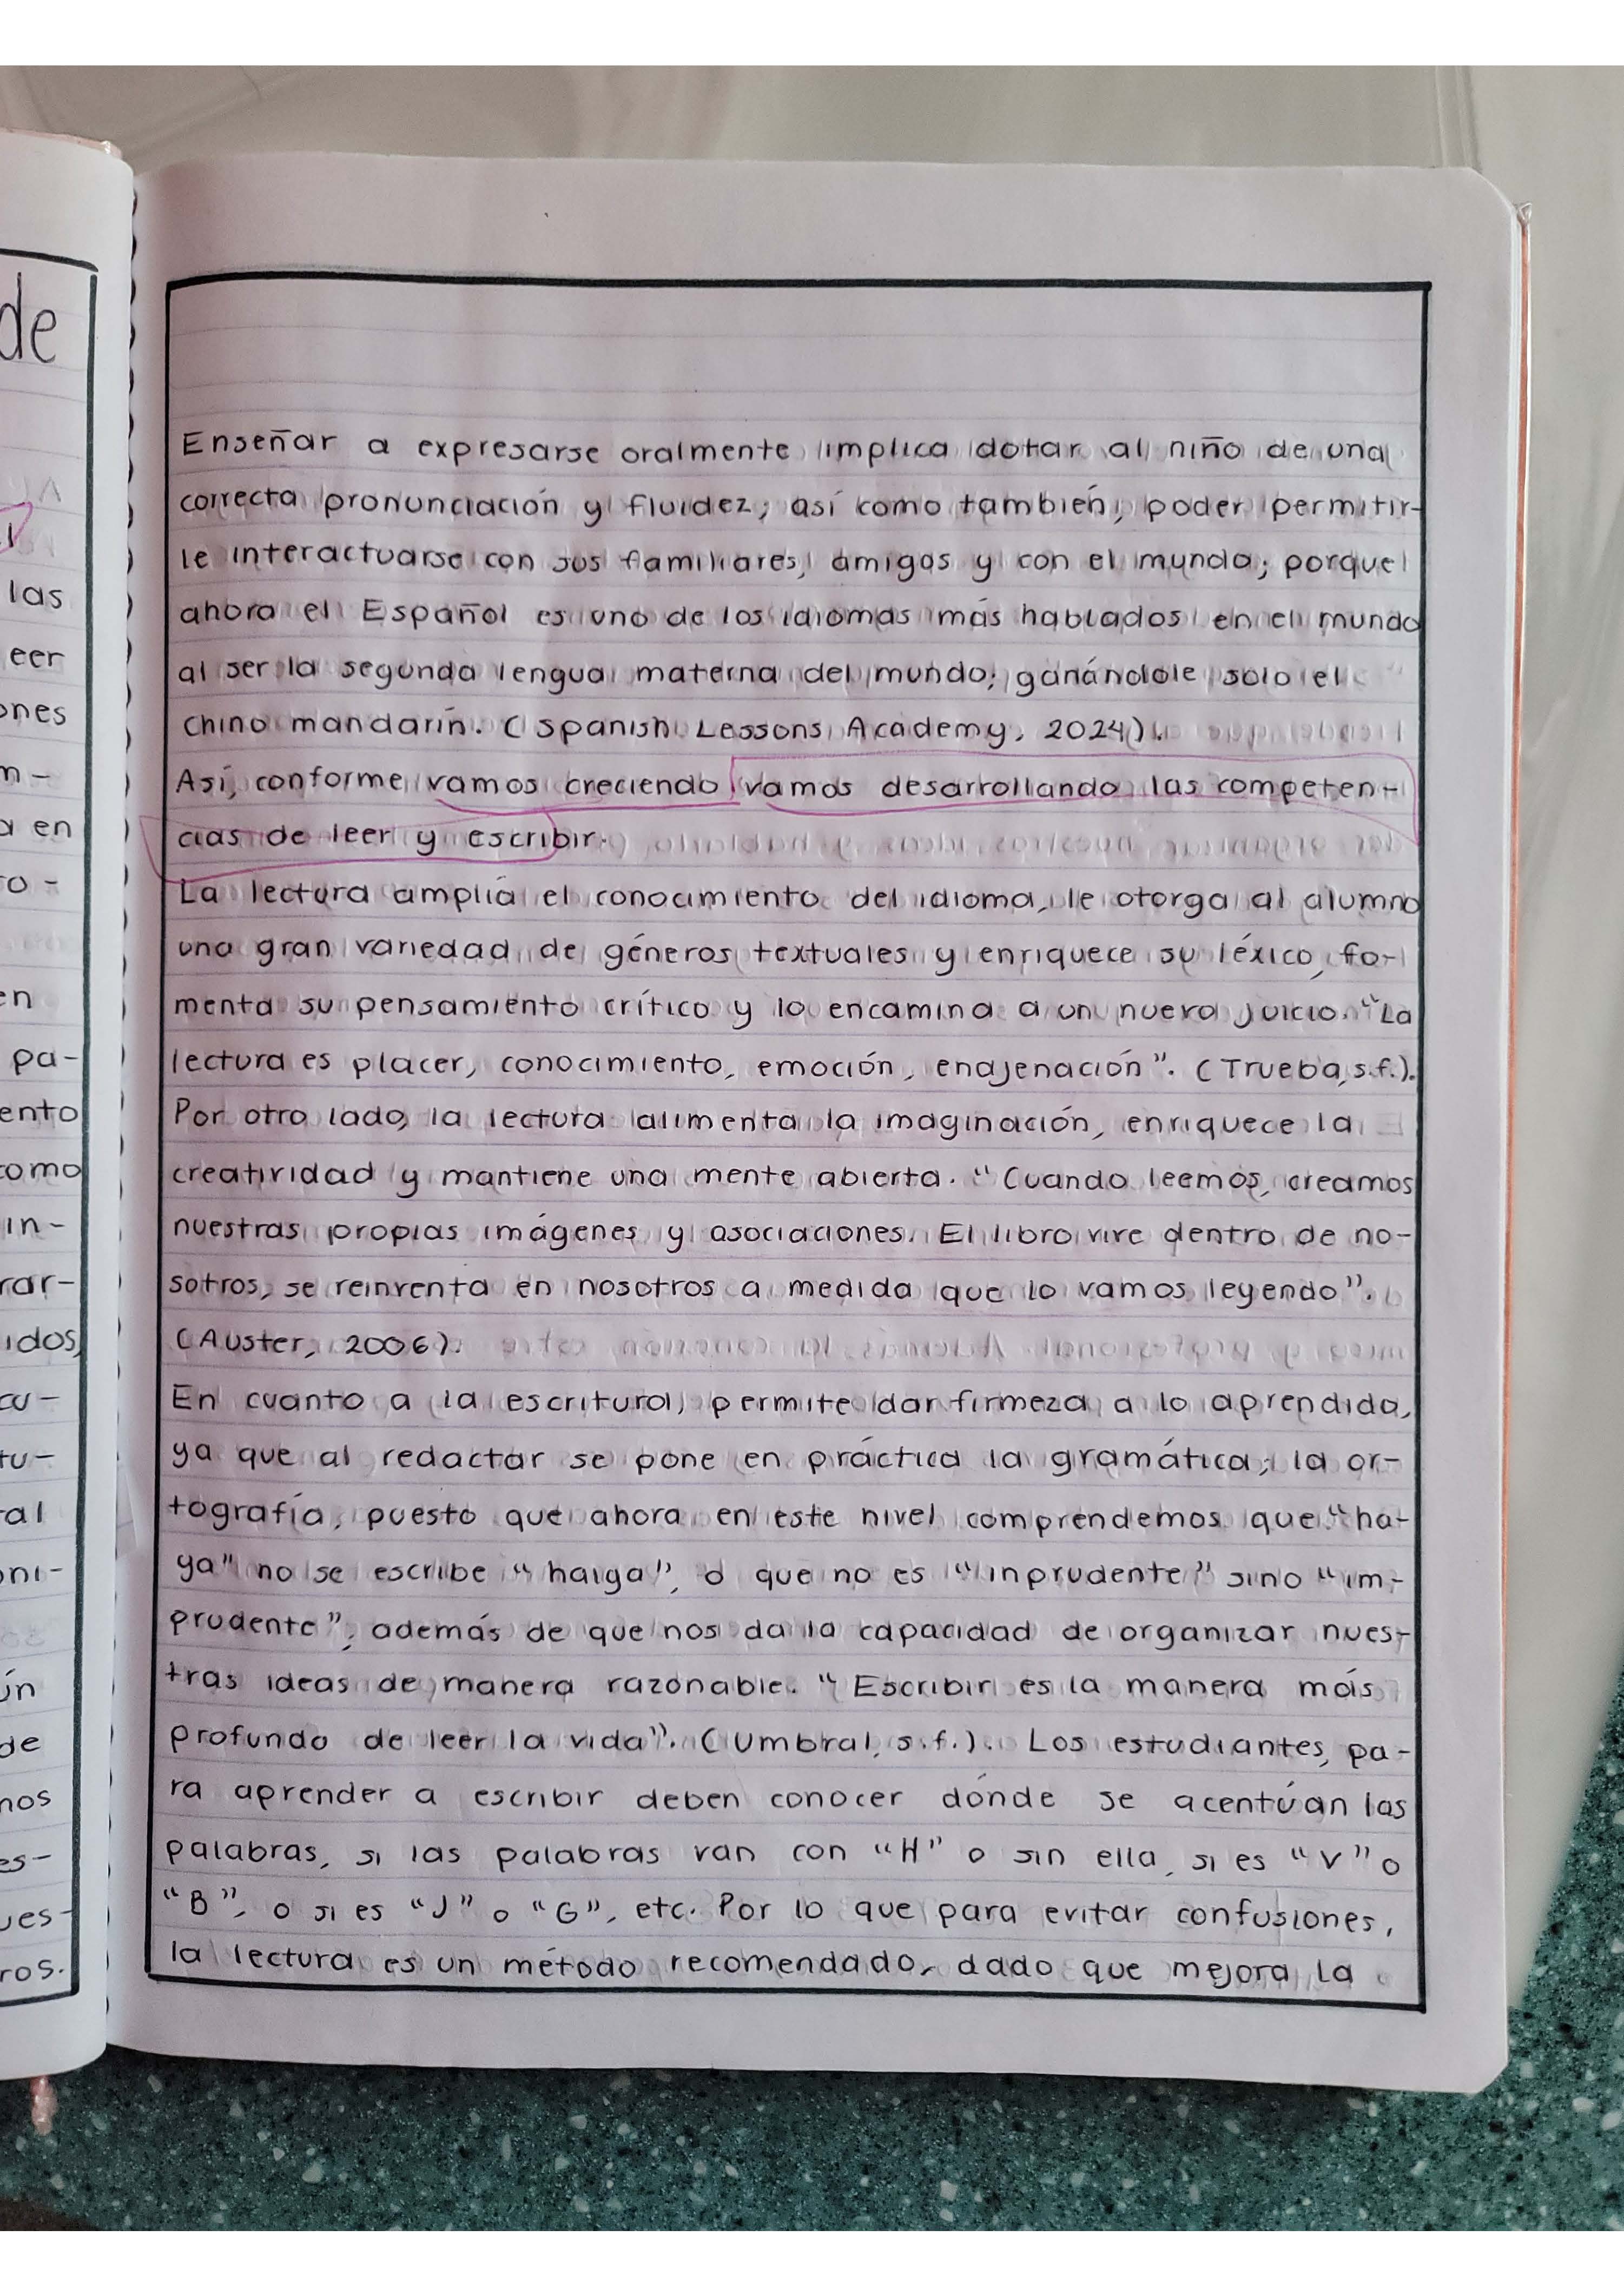 de
las
eer
ones
m-
a en
ro-
en
pa-
ento
como
in-
rar-
idos,
cu-
tu-
tal
oni-
ún
de
nos
es-
ues-
ros.
Enseñar a expresarse oralmente implica dotar al niño de una
correcta pronunciación y fluidez; así como también, poder permitir-
le interactuarse con sus familiares, amigos y con el mundo; porque
ahora el Español es uno de los idiomas más hablados en el mundo
al ser la segunda lengua materna del mundo; ganándole solo el
Chino mandarín. (Spanish Lessons Academy, 2024).
Así, conforme vamos creciendo vamos desarrollando las competen-
cias de leer y escribir.
La lectura amplía el conocimiento del idioma, le otorga al alumno
una gran variedad de géneros textuales y enriquece su léxico, fo-
menta su pensamiento crítico y lo encamina a un nuevo juicio. "La
lectura es placer, conocimiento, emoción, enajenación". (Trueba, s.f.).
Por otro lado, la lectura alimenta la imaginación, enriquece la
creatividad y mantiene una mente abierta. "Cuando leemos, creamos
nuestras propias imágenes y asociaciones. El libro vive dentro de no-
sotros, se reinventa en nosotros a medida que lo vamos leyendo".
(Auster, 2006).
En cuanto a la escritura, permite dar firmeza a lo aprendida,
ya que al redactar se pone en práctica la gramática, la or-
tografía, puesto que ahora en este nivel comprendemos que "ha-
ya" no se escribe "haiga", o que no es "inprudente" sino "im-
prudente", además de que nos da la capacidad de organizar nues-
tras ideas de manera razonable. "Escribir es la manera más
profunda de leer la vida". (Umbral, s.f.). Los estudiantes, pa-
ra aprender a escribir deben conocer dónde se acentúan las
palabras, si las palabras van con "H" o sin ella, si es "V" o
"B", o si es "J" o "G", etc. Por lo que para evitar confusiones,
la lectura es un método recomendado, dado que mejora la